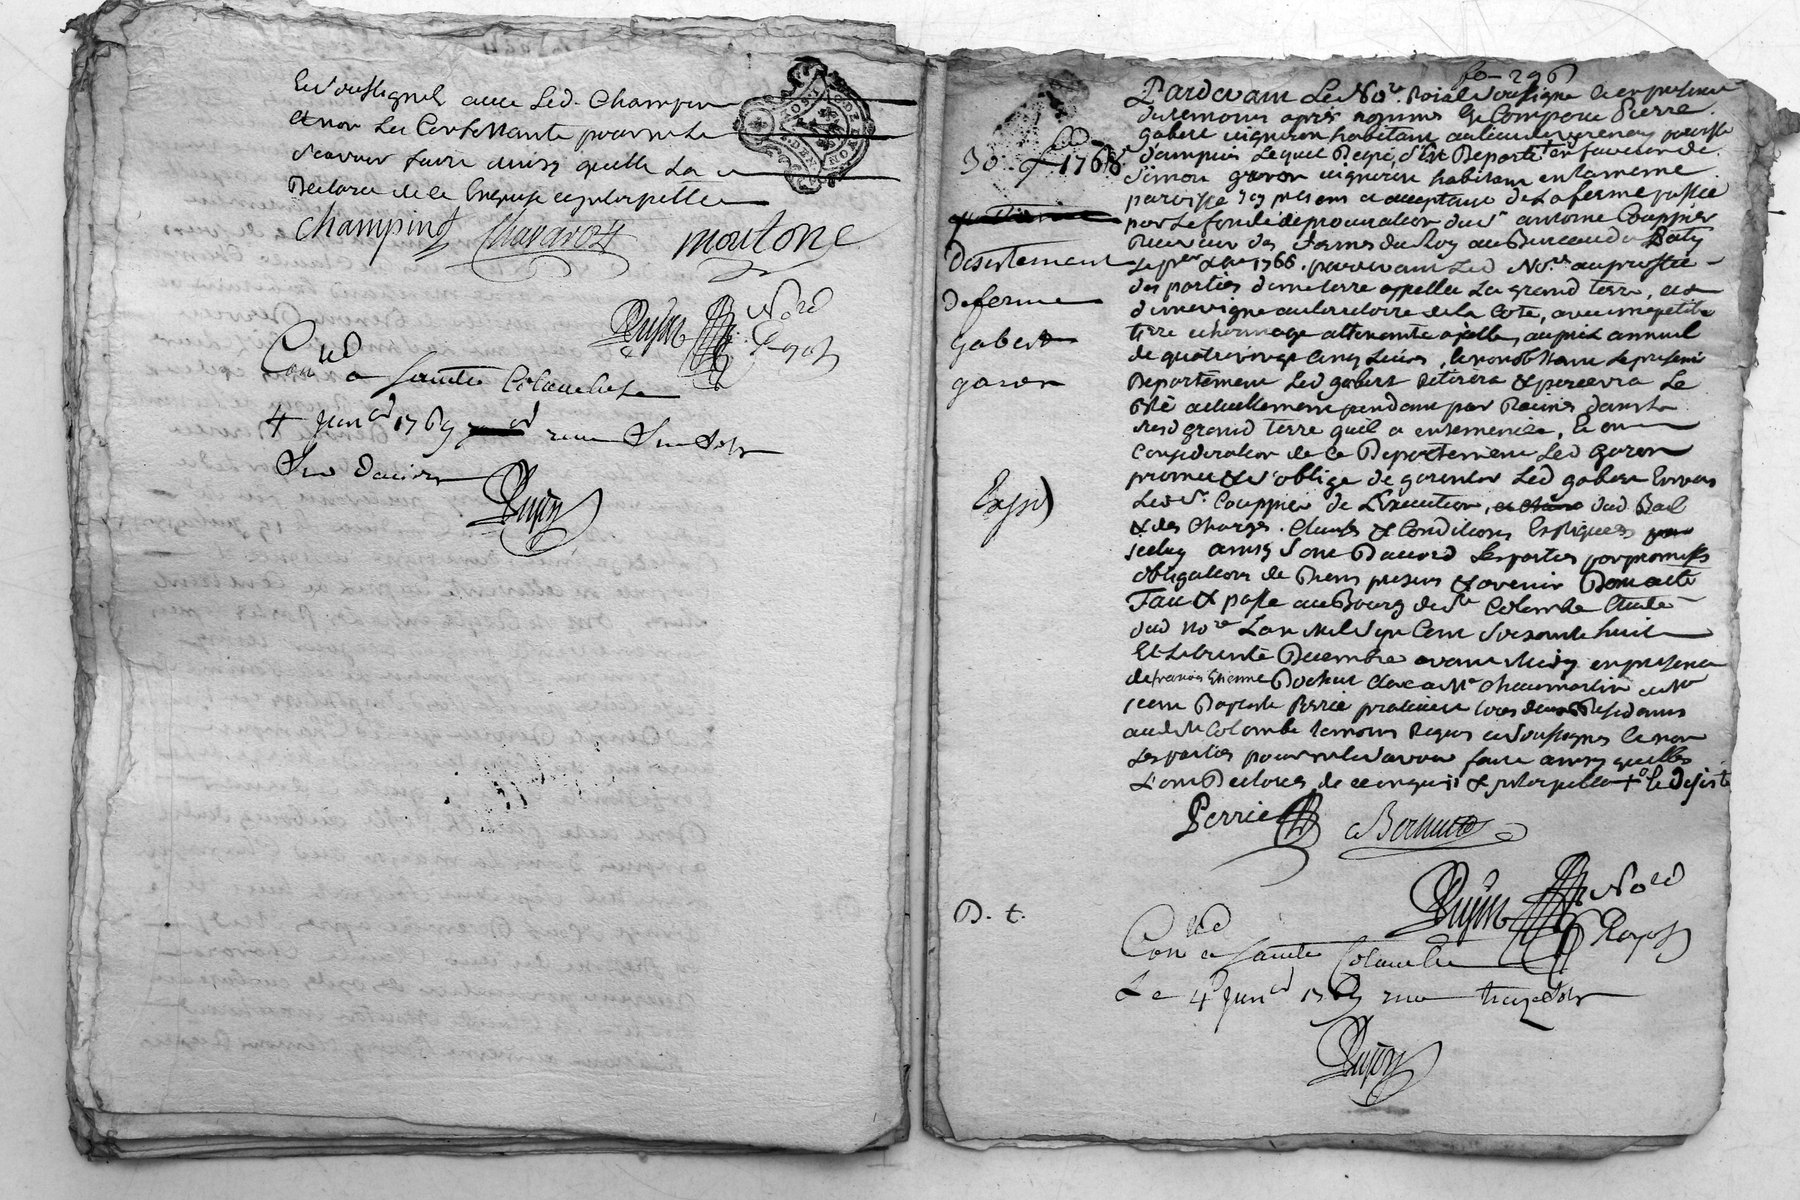 et soussignés avec led. Champin
et non la Confessante pour ne le
scavoir faire ainsy quelle la
declaré de ce enquise et interpellée
champin Chavarot moutone
Dujon Nord
Royal
Con lé a Sainte Colombe le
4 Janer 1769
Dujon
fo 296
Pardevant Le Nore. Roial soussigné et en presence
des temoins apres nommés est Comparu Pierre
gabert vigneron habitant au lieu de verenay paroisse
30 Xbre 1768
d'ampuis Lequel De gré, s'est Departi en faveur de
Simon garon vigneron habitant en la meme
paroisse icy present et acceptant de La ferme passée
par Le fondé de procuration du sr. antoine Couppier
Receveur des fermes du Roy au Bureau du
Desistement
Le per Xbre 1766. pardevant Led Nore. au proffit
des parties d'une terre appellée La grand terre, et
de ferme
d'une vigne au territoire de la Cote, avec une petite
gabert
terre et hermage attenante a jcelle, au prix annuel
de quatre vingt Cinq Livres, et nonobstant Le present
garon
Departement Led gabert retirera & percevra Le
blé actuellement pendant par Racines dans la
susd grand terre quil a ensemencée, Et en
Consideration de ce Departement Led garon
promet & s'oblige de garentir Led gabert Envers
Exp)
Led sr. Couppier de L'execution, dud Bail
& des Charges. Clauses & Conditions Expliquées
jcelluy ainsy sont D'accord Les parties par promesses
obligations de Biens presens & avenir Dont acte
Fait & passé au Bourg de Ste Colombe Etude
dud nore L'an Mil sept Cent soixante huit
Et Le trente Decembre avant Midy en presence
de francois Etienne Clerc a Me chaumartin et Me
jean Baptiste Perrié praticien tous deux Residants
aud Ste Colombe temoins Requis et soussignés et non
Les parties pour ne le scavoir faire ainsy quelles
L'ont Declarés de ce enquis & jnterpellés + le desisté
Perrié Bernard
Dujon Nord
D. t.
Royal
Con lé a Sainte Colombe
Le 4 Janer 1769 reçu treze sols
Dujon